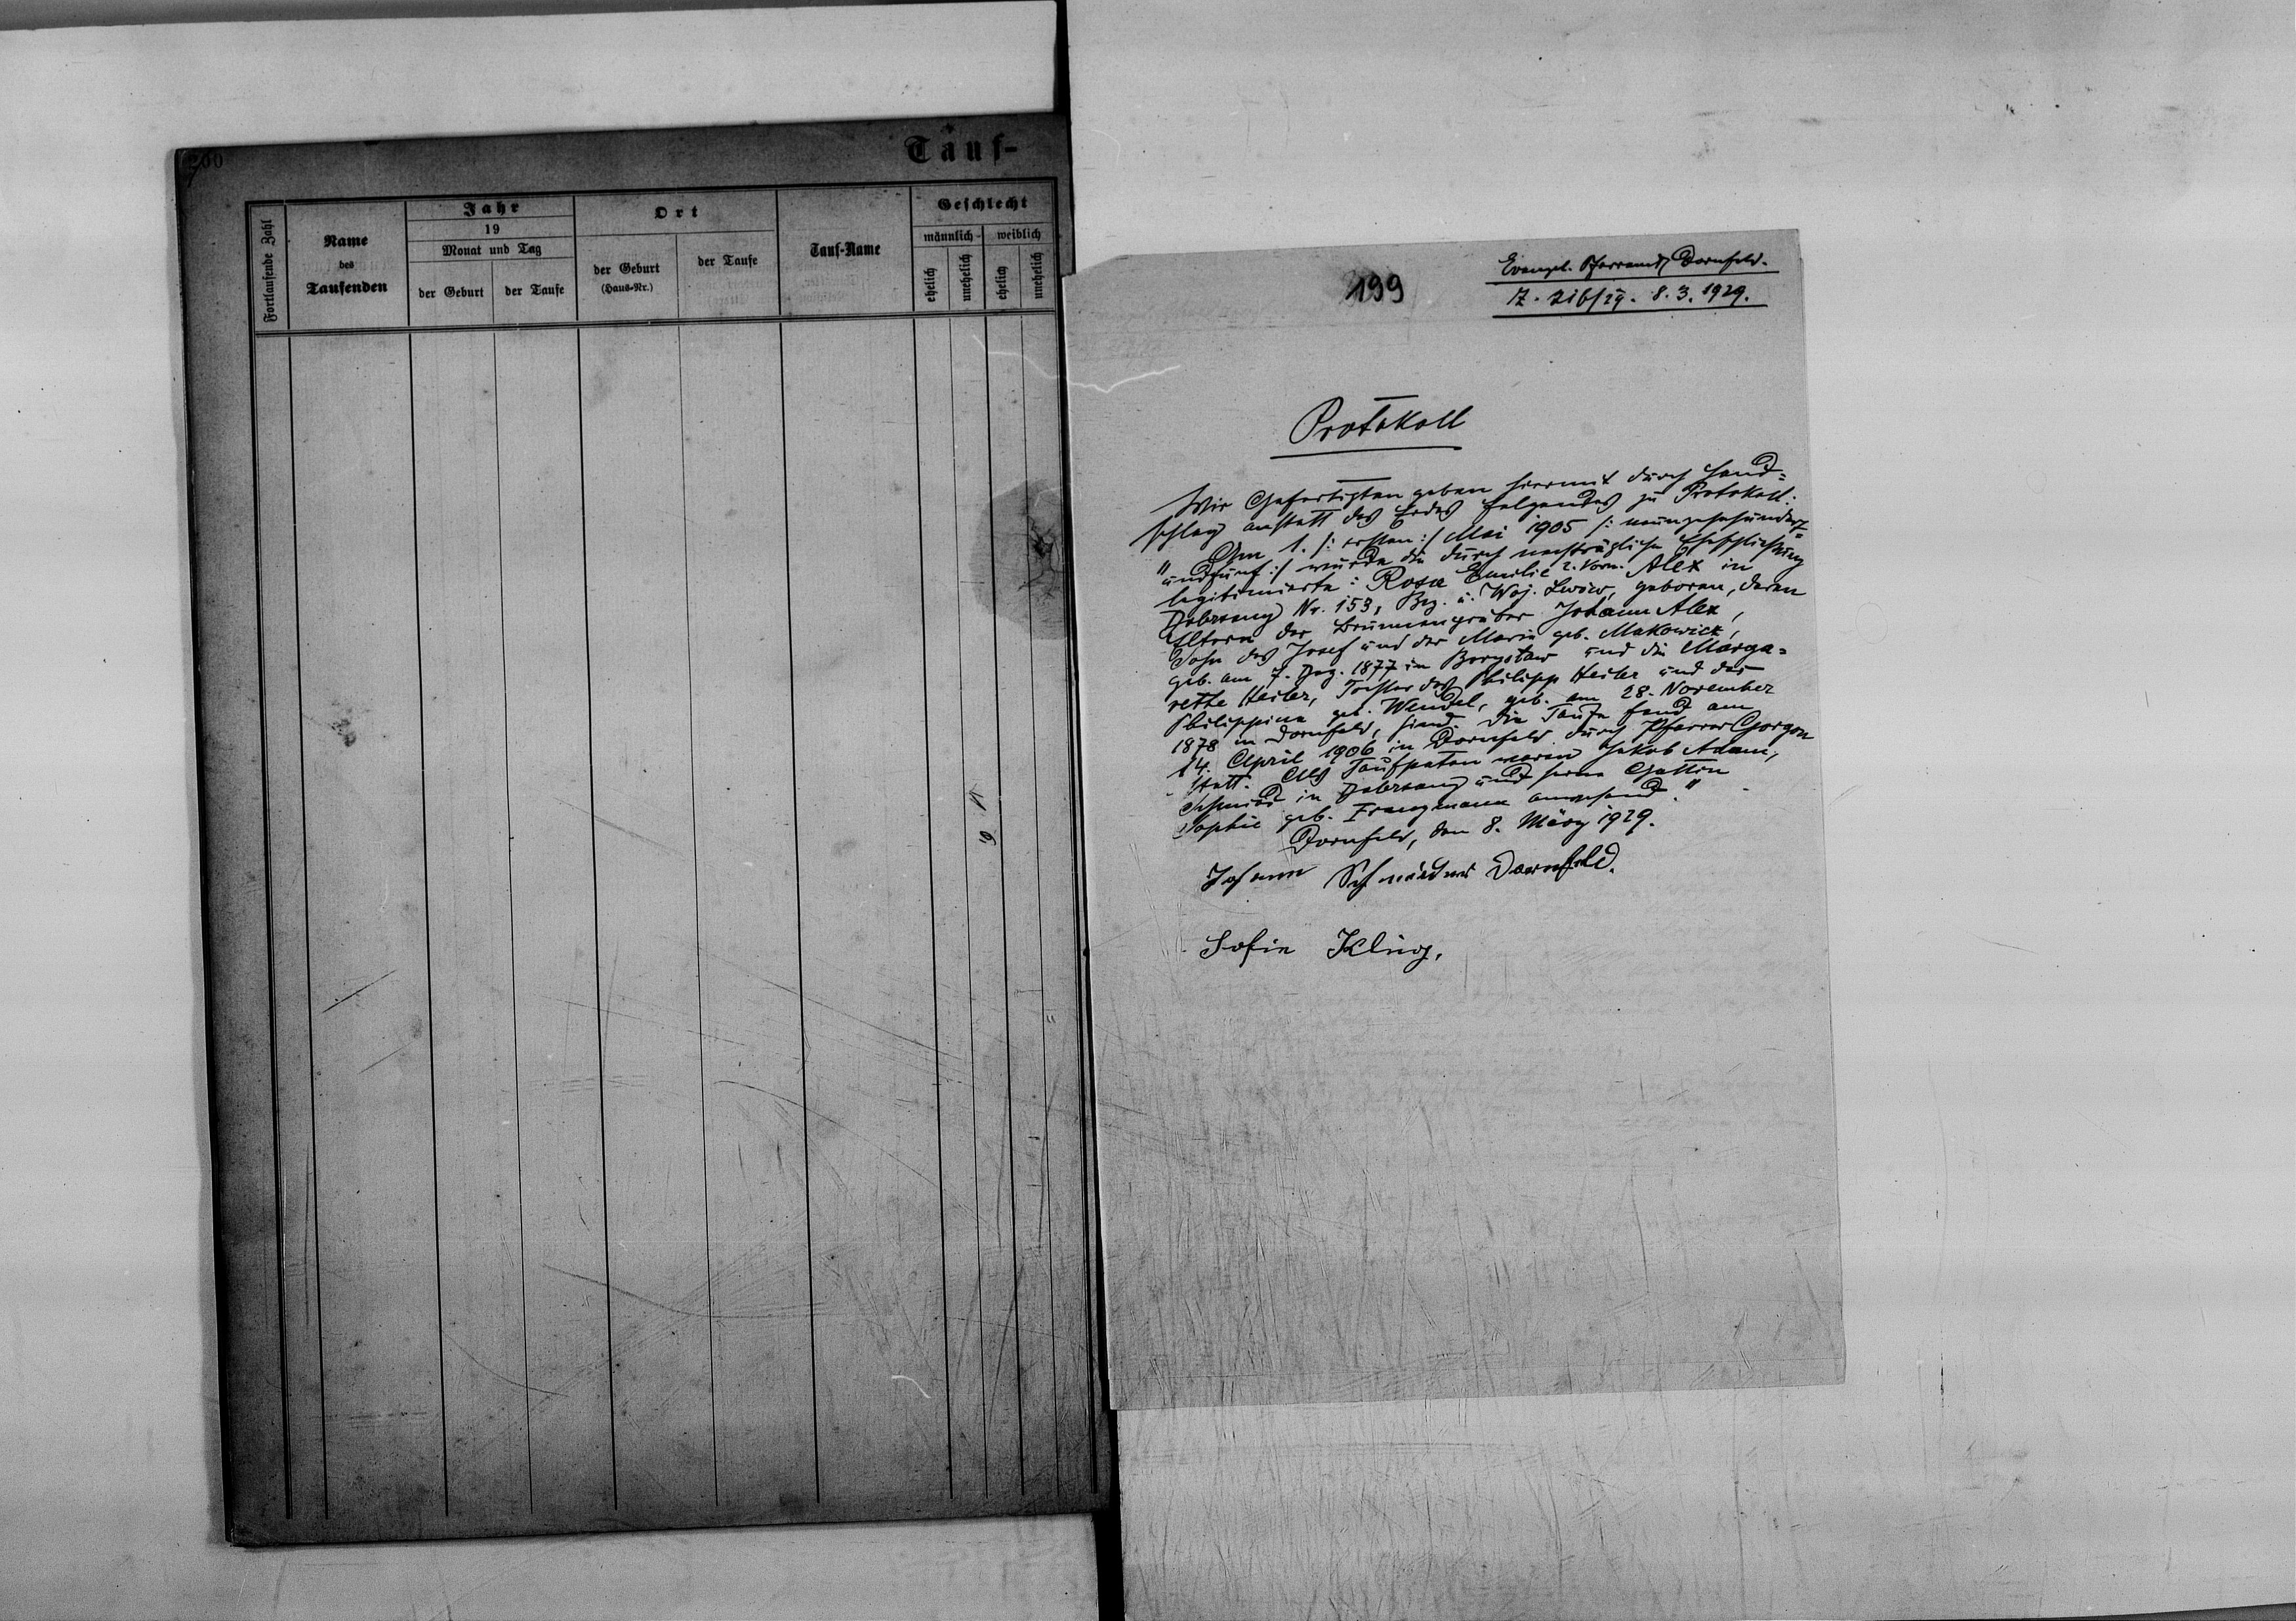 200
Tauf-
Fortlaufende Zahl
Name
des
Taufenden
Jahr
19
Monat und Tag
der Geburt
der Taufe
Ort
der Geburt
(Haus-Nr.)
der Taufe
Tauf-Name
Geschlecht
männlich
weiblich
ehelich
unehelich
ehelich
unehelich
199
Evangel. Pfarramt Dornfeld.
Z. 216/29. 8.3.1929.
Protokoll
Wir Gefertigten geben hiermit durch Hand=
schlag anstatt des Eides folgendes zu Protokoll:
"Am 1. /: ersten :/ Mai 1905 /: neunzehnhundert=
undfünf :/ wurde die durch nachträgliche Eheschließung
legitimierte: Rosa Emilie 2. Vorn. Alex in
Nr. 153, Bez. u. Woj. Lwów, geboren, deren
Eltern der Brunnengräber Johann Alex,
Sohn des Josef und der Maria geb. Makowicz,
geb. am 7. Dez. 1877 in Borysław und die Marga=
rethe Heiler, Tochter des Philipp Heiler und der
Philippine geb. Wendel, geb. am 28. November
1878 in Dornfeld, sind. Die Taufe fand am
14. April 1906 in Dornfeld durch Pfarrer Gorgon
statt. Als Taufpaten waren Jakob Adam,
Schmied in und seine Gattin
Sophie geb. Franzmann anwesend."
Dornfeld, den 8. März 1929.
Johann Dornfeld.
Sofie Kling.